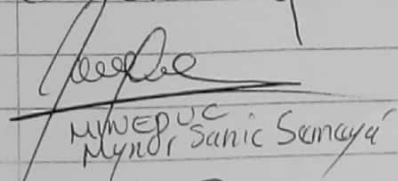 MINEDUC
Mynor Sanic Samayá